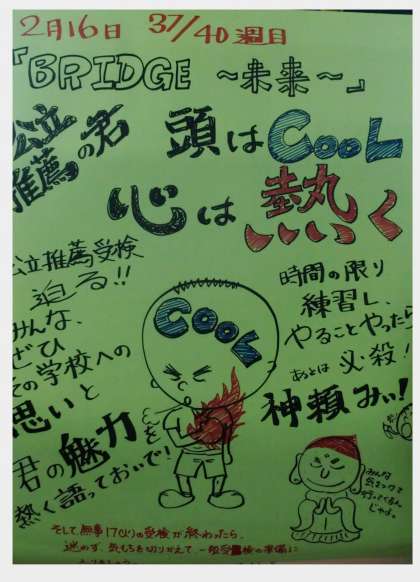 2月16日 37/40週目
『BRIDGE ～未来～』
公立
推薦の君
頭はCOOL
心は熱く
公立推薦受検
迫る!!
みんな、
ぜひ
その学校への
思いと
君の魅力を
熱く語っておいで!
COOL
時間の限り
練習し、
やることやったら
あとは必殺!
神頼みぃ!
みんな
気をつけて
行ってくるん
じゃよ。
そして、無事17(火)の受検が終わったら、
迷わず、気もちを切りかえて、一般受検の準備に